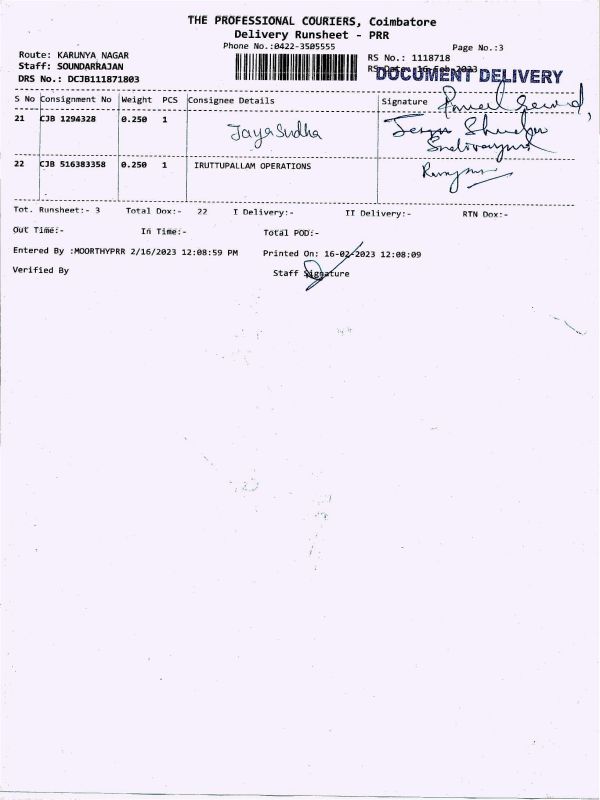 THE PROFESSIONAL COURIERS, Coimbatore
Delivery Runsheet - PRR
Phone No.:0422-3505555
Page No.:3
Route: KARUNYA NAGAR
Staff: SOUNDARRAJAN
DRS No.: DCJB111871803
RS No.: 1118718
RS Date: 16-Feb-2023
DOCUMENT DELIVERY
S No Consignment No Weight PCS Consignee Details Signature
21 CJB 1294328 0.250 1 Jayasudha
22 CJB 516383358 0.250 1 IRUTTUPALLAM OPERATIONS
Tot. Runsheet:- 3 Total Dox:- 22 I Delivery:- II Delivery:- RTN Dox:-
Out Time:- In Time:- Total POD:-
Entered By :MOORTHYPRR 2/16/2023 12:08:59 PM Printed On: 16-02-2023 12:08:09
Verified By Staff Signature